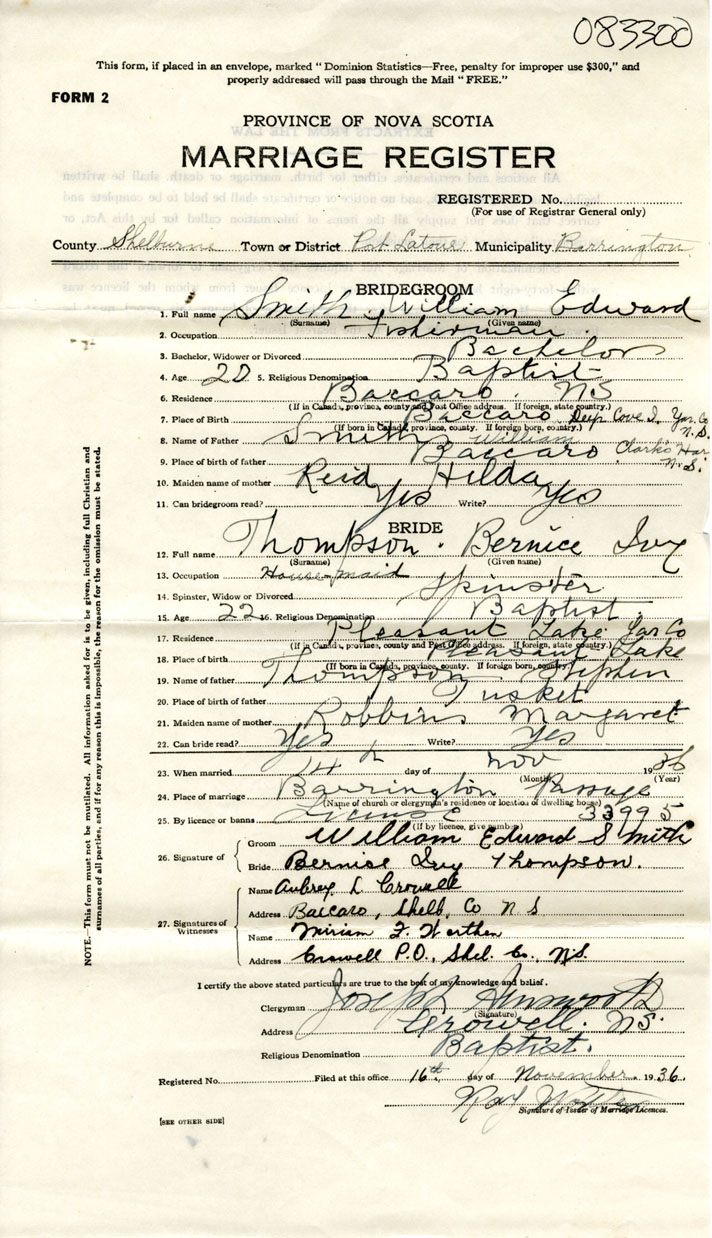 083300
This form, if placed in an envelope, marked "Dominion Statistics—Free, penalty for improper use $300," and
properly addressed will pass through the Mail "FREE."
FORM 2
PROVINCE OF NOVA SCOTIA
MARRIAGE REGISTER
REGISTERED No.
(For use of Registrar General only)
County Shelburne Town or District Port Latour Municipality Barrington
BRIDEGROOM
1. Full name Smith William Edward
(Surname) (Given name)
2. Occupation Fisherman
3. Bachelor, Widower or Divorced Bachelor
4. Age 20 5. Religious Denomination Baptist
6. Residence Baccaro. NS
(If in Canada, province, county and Post Office address. If foreign, state country.)
7. Place of Birth Baccaro Deep Cove I. Yar. Co N.S.
(If born in Canada, province, county. If foreign born, country.)
8. Name of Father Smith William
9. Place of birth of father Baccaro Clark's Har. N.S.
10. Maiden name of mother Reid Hilda
11. Can bridegroom read? Yes Write? Yes
BRIDE
12. Full name Thompson. Bernice Ivy
(Surname) (Given name)
13. Occupation House-maid
14. Spinster, Widow or Divorced Spinster
15. Age 22 16. Religious Denomination Baptist
17. Residence Pleasant Lake. Yar Co
(If in Canada, province, county and Post Office address. If foreign, state country.)
18. Place of birth Pleasant Lake
(If born in Canada, province, county. If foreign born, country.)
19. Name of father Thompson Stephen
20. Place of birth of father Tusket
21. Maiden name of mother Robbins Margaret
22. Can bride read? Yes Write? Yes
23. When married 14th day of Nov 1936
(Month) (Year)
24. Place of marriage Barrington Passage
(Name of church or clergyman's residence or location of dwelling house)
25. By licence or banns License 33995
(If by licence, give number)
26. Signature of Groom William Edward Smith
Bride Bernice Ivy Thompson.
27. Signatures of Witnesses
Name Aubrey L Crowell
Address Baccaro, Shelb, Co N S
Name Miriam F. Worthen
Address Crowell P.O., Shel. Co., N.S.
I certify the above stated particulars are true to the best of my knowledge and belief.
Clergyman Joseph Ainsworth
(Signature)
Address Crowell. NS.
Religious Denomination Baptist.
Registered No. Filed at this office 16th day of November 1936.
Signature of Issuer of Marriage Licences.
[SEE OTHER SIDE]
NOTE. This form must not be mutilated. All information asked for is to be given, including full Christian and
surnames of all parties, and if for any reason this is impossible, the reason for the omission must be stated.